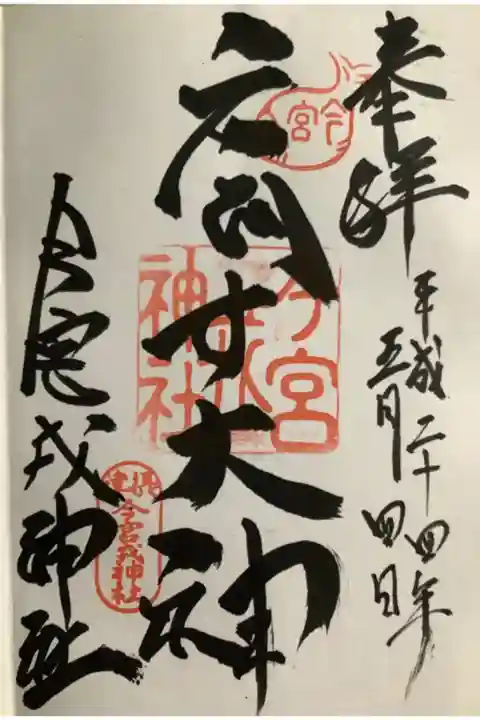 奉拝
平成二十四年
五月四日
大神
今宮戎神社
今宮
今宮戎神社
今宮戎神社